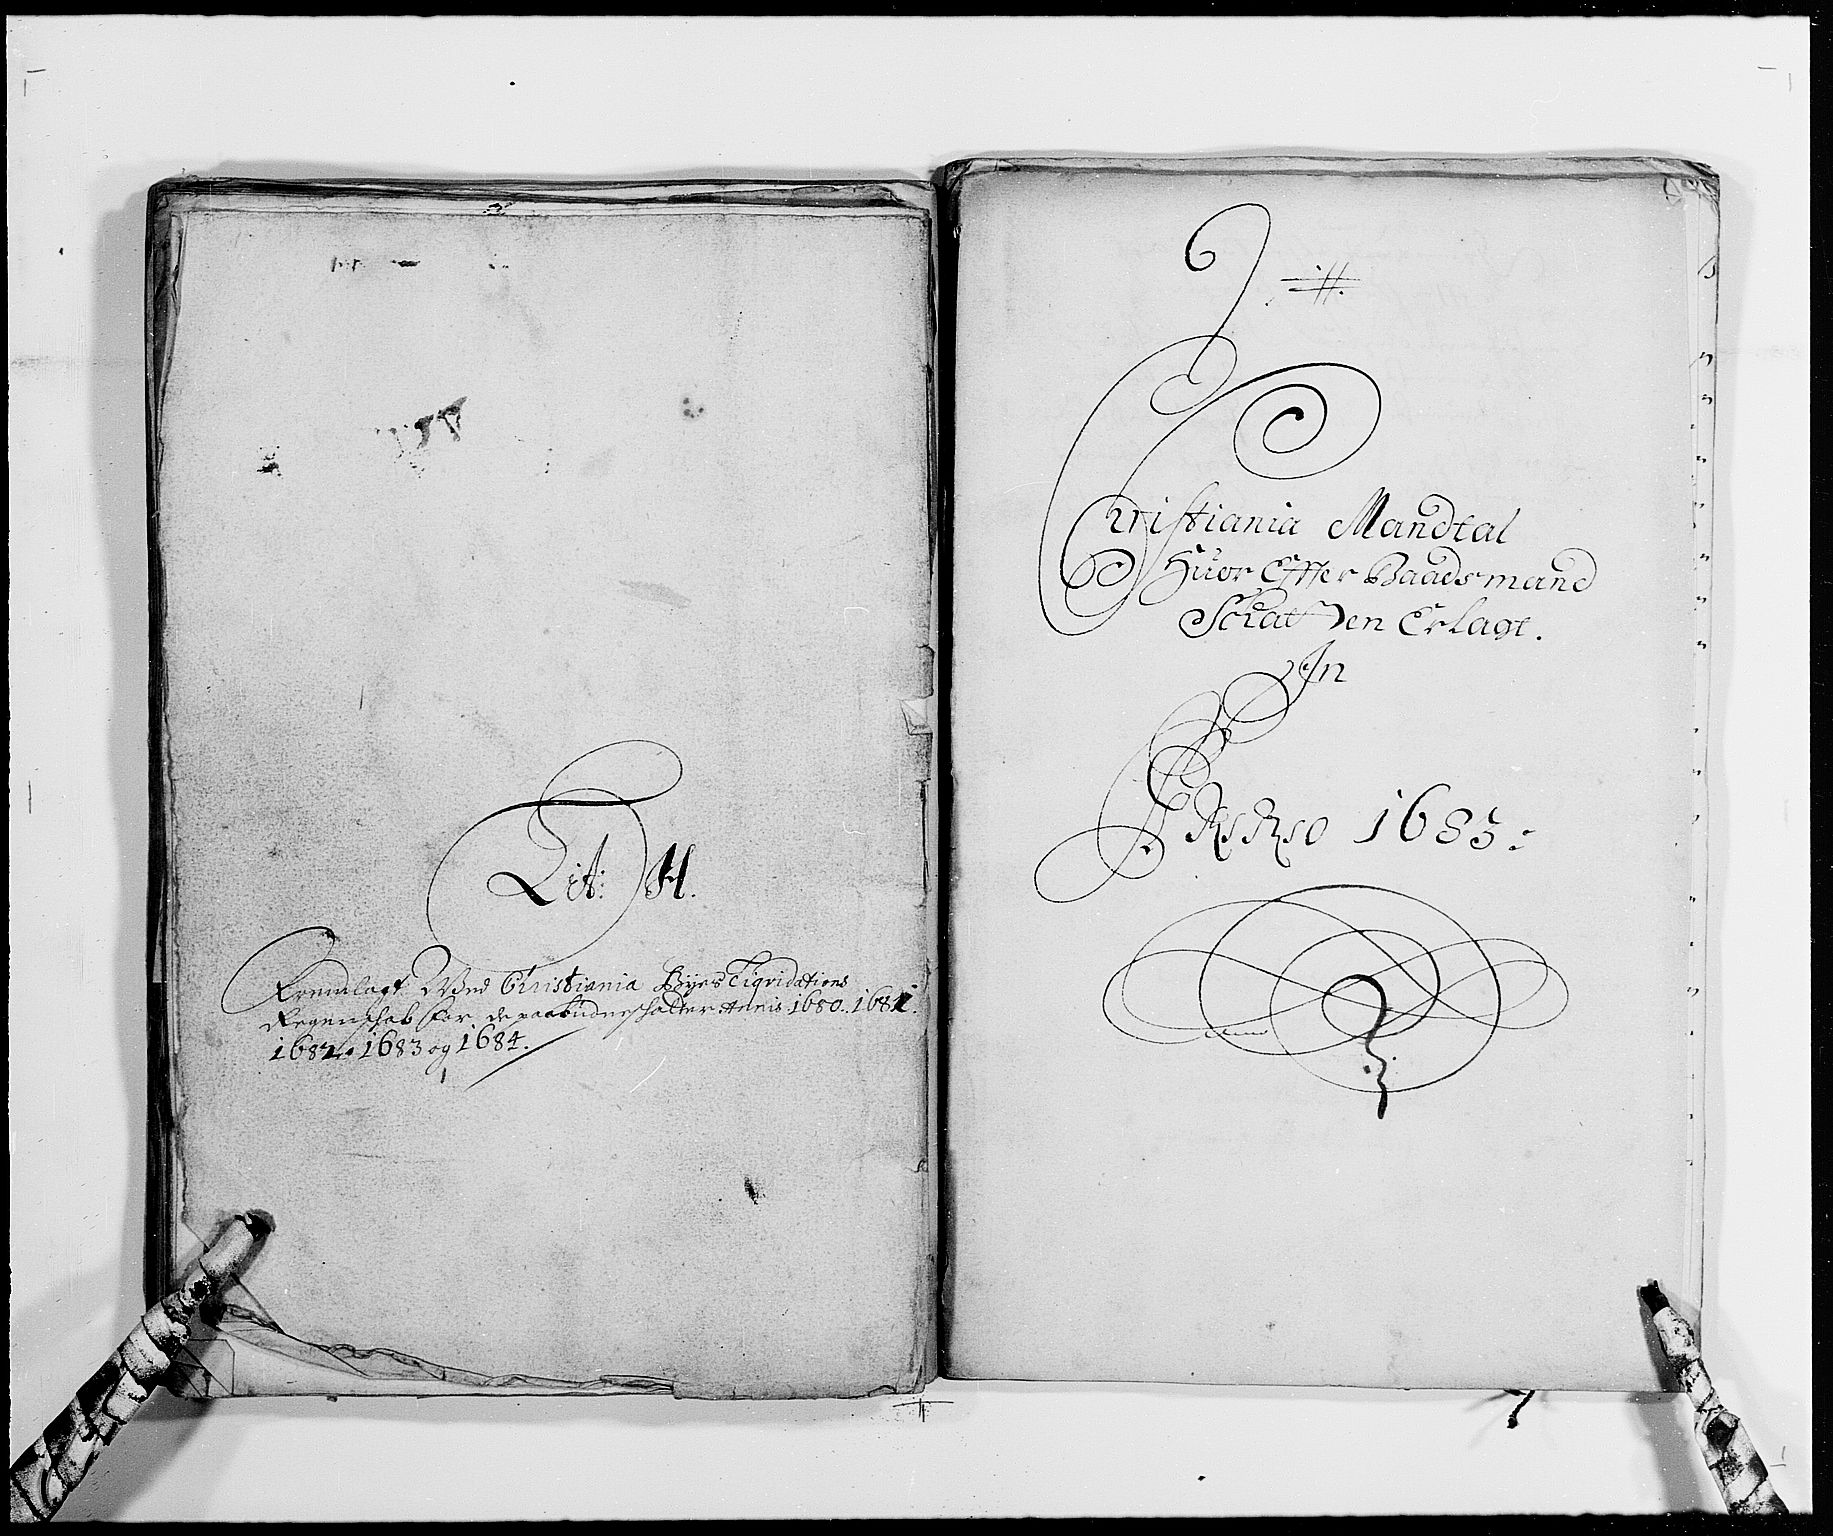 Lit: H.
Fremlagt Ved Christiania Byes Liqvidations
Regenschab for de paabudne schatter Annis 1680. 1681.
1682. 1683 og 1684.
Christiania Mandtal
Huor Effter Baadsmand
Schatten Erlagt.
In
ANNO 1683: